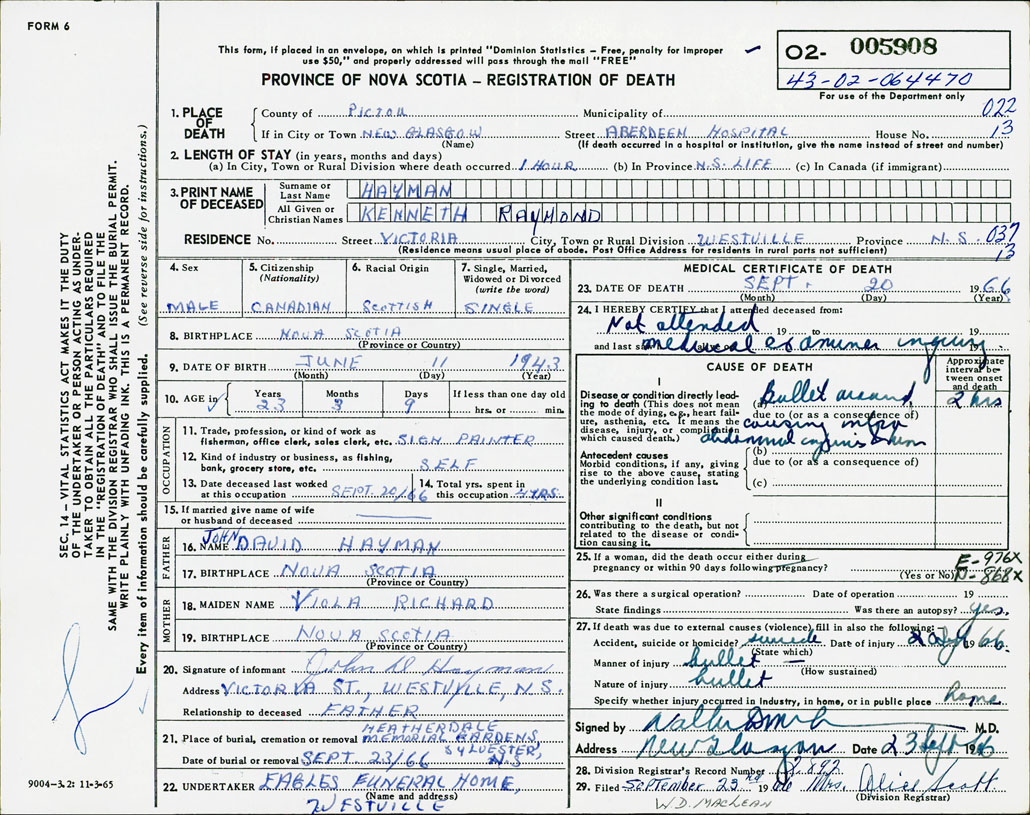 FORM 6
This form, if placed in an envelope, on which is printed "Dominion Statistics – Free, penalty for improper
use $50," and properly addressed will pass through the mail "FREE"
PROVINCE OF NOVA SCOTIA – REGISTRATION OF DEATH
02- 005908
43-02-064470
For use of the Department only
SEC. 14 – VITAL STATISTICS ACT MAKES IT THE DUTY
OF THE UNDERTAKER OR PERSON ACTING AS UNDER-
TAKER TO OBTAIN ALL THE PARTICULARS REQUIRED
IN THE "REGISTRATION OF DEATH" AND TO FILE THE
SAME WITH THE DIVISION REGISTRAR WHO SHALL ISSUE THE BURIAL PERMIT.
WRITE PLAINLY WITH UNFADING INK. THIS IS A PERMANENT RECORD.
Every item of information should be carefully supplied. (See reverse side for instructions.)
1. PLACE OF DEATH
County of PICTOU Municipality of 022
If in City or Town NEW GLASGOW Street ABERDEEN HOSPITAL House No. 13
(Name) (If death occurred in a hospital or institution, give the name instead of street and number)
2. LENGTH OF STAY (in years, months and days)
(a) In City, Town or Rural Division where death occurred 1 HOUR (b) In Province N.S. LIFE (c) In Canada (if immigrant)
3. PRINT NAME OF DECEASED
Surname or Last Name HAYMAN
All Given or Christian Names KENNETH RAYMOND
RESIDENCE No. Street VICTORIA City, Town or Rural Division WESTVILLE Province N.S. 037
(Residence means usual place of abode. Post Office Address for residents in rural parts not sufficient) 13
4. Sex MALE
5. Citizenship (Nationality) CANADIAN
6. Racial Origin SCOTTISH
7. Single, Married, Widowed or Divorced (write the word) SINGLE
8. BIRTHPLACE NOVA SCOTIA
(Province or Country)
9. DATE OF BIRTH JUNE 11 1943
(Month) (Day) (Year)
10. AGE in Years Months Days If less than one day old
23 3 9 hrs. or min.
OCCUPATION
11. Trade, profession, or kind of work as
fisherman, office clerk, sales clerk, etc. SIGN PAINTER
12. Kind of industry or business, as fishing,
bank, grocery store, etc. SELF
13. Date deceased last worked at this occupation SEPT. 20/66
14. Total yrs. spent in this occupation 4 YRS
15. If married give name of wife
or husband of deceased
FATHER
16. NAME JOHN DAVID HAYMAN
17. BIRTHPLACE NOVA SCOTIA
(Province or Country)
MOTHER
18. MAIDEN NAME VIOLA RICHARD
19. BIRTHPLACE NOVA SCOTIA
(Province or Country)
20. Signature of informant John D Hayman
Address VICTORIA ST., WESTVILLE, N.S.
Relationship to deceased FATHER
21. Place of burial, cremation or removal HEATHERDALE MEMORIAL GARDENS
SYLVESTER, N.S
Date of burial or removal SEPT 23/66
22. UNDERTAKER EAGLES FUNERAL HOME,
(Name and address)
WESTVILLE
9004–3.2: 11-3-65
MEDICAL CERTIFICATE OF DEATH
23. DATE OF DEATH SEPT. 20 1966
(Month) (Day) (Year)
24. I HEREBY CERTIFY that I attended deceased from:
Not attended 19 to 19
and last saw medical examiner inquiry 19
CAUSE OF DEATH
Approximate interval between onset and death
I
Disease or condition directly leading to death (This does not mean the mode of dying, e.g., heart failure, asthenia, etc. It means the disease, injury, or complication which caused death.)
(a) bullet wound 2 hrs
due to (or as a consequence of)
causing intra
abdominal
Antecedent causes
Morbid conditions, if any, giving rise to the above cause, stating the underlying condition last.
(b)
due to (or as a consequence of)
(c)
II
Other significant conditions
contributing to the death, but not related to the disease or condition causing it.
25. If a woman, did the death occur either during
pregnancy or within 90 days following pregnancy? (Yes or No)
E-976X
N-868X
26. Was there a surgical operation? Date of operation 19
State findings Was there an autopsy? yes.
27. If death was due to external causes (violence) fill in also the following:
Accident, suicide or homicide? suicide Date of injury 1966.
(State which)
Manner of injury bullet —
(How sustained)
Nature of injury bullet
Specify whether injury occurred in industry, in home, or in public place home
Signed by M.D.
Address New Glasgow Date 23 Sept 1966
28. Division Registrar's Record Number 2892
29. Filed September 23rd 1966 Mrs. Alice Scott
(Division Registrar)
W.D. MACLEAN